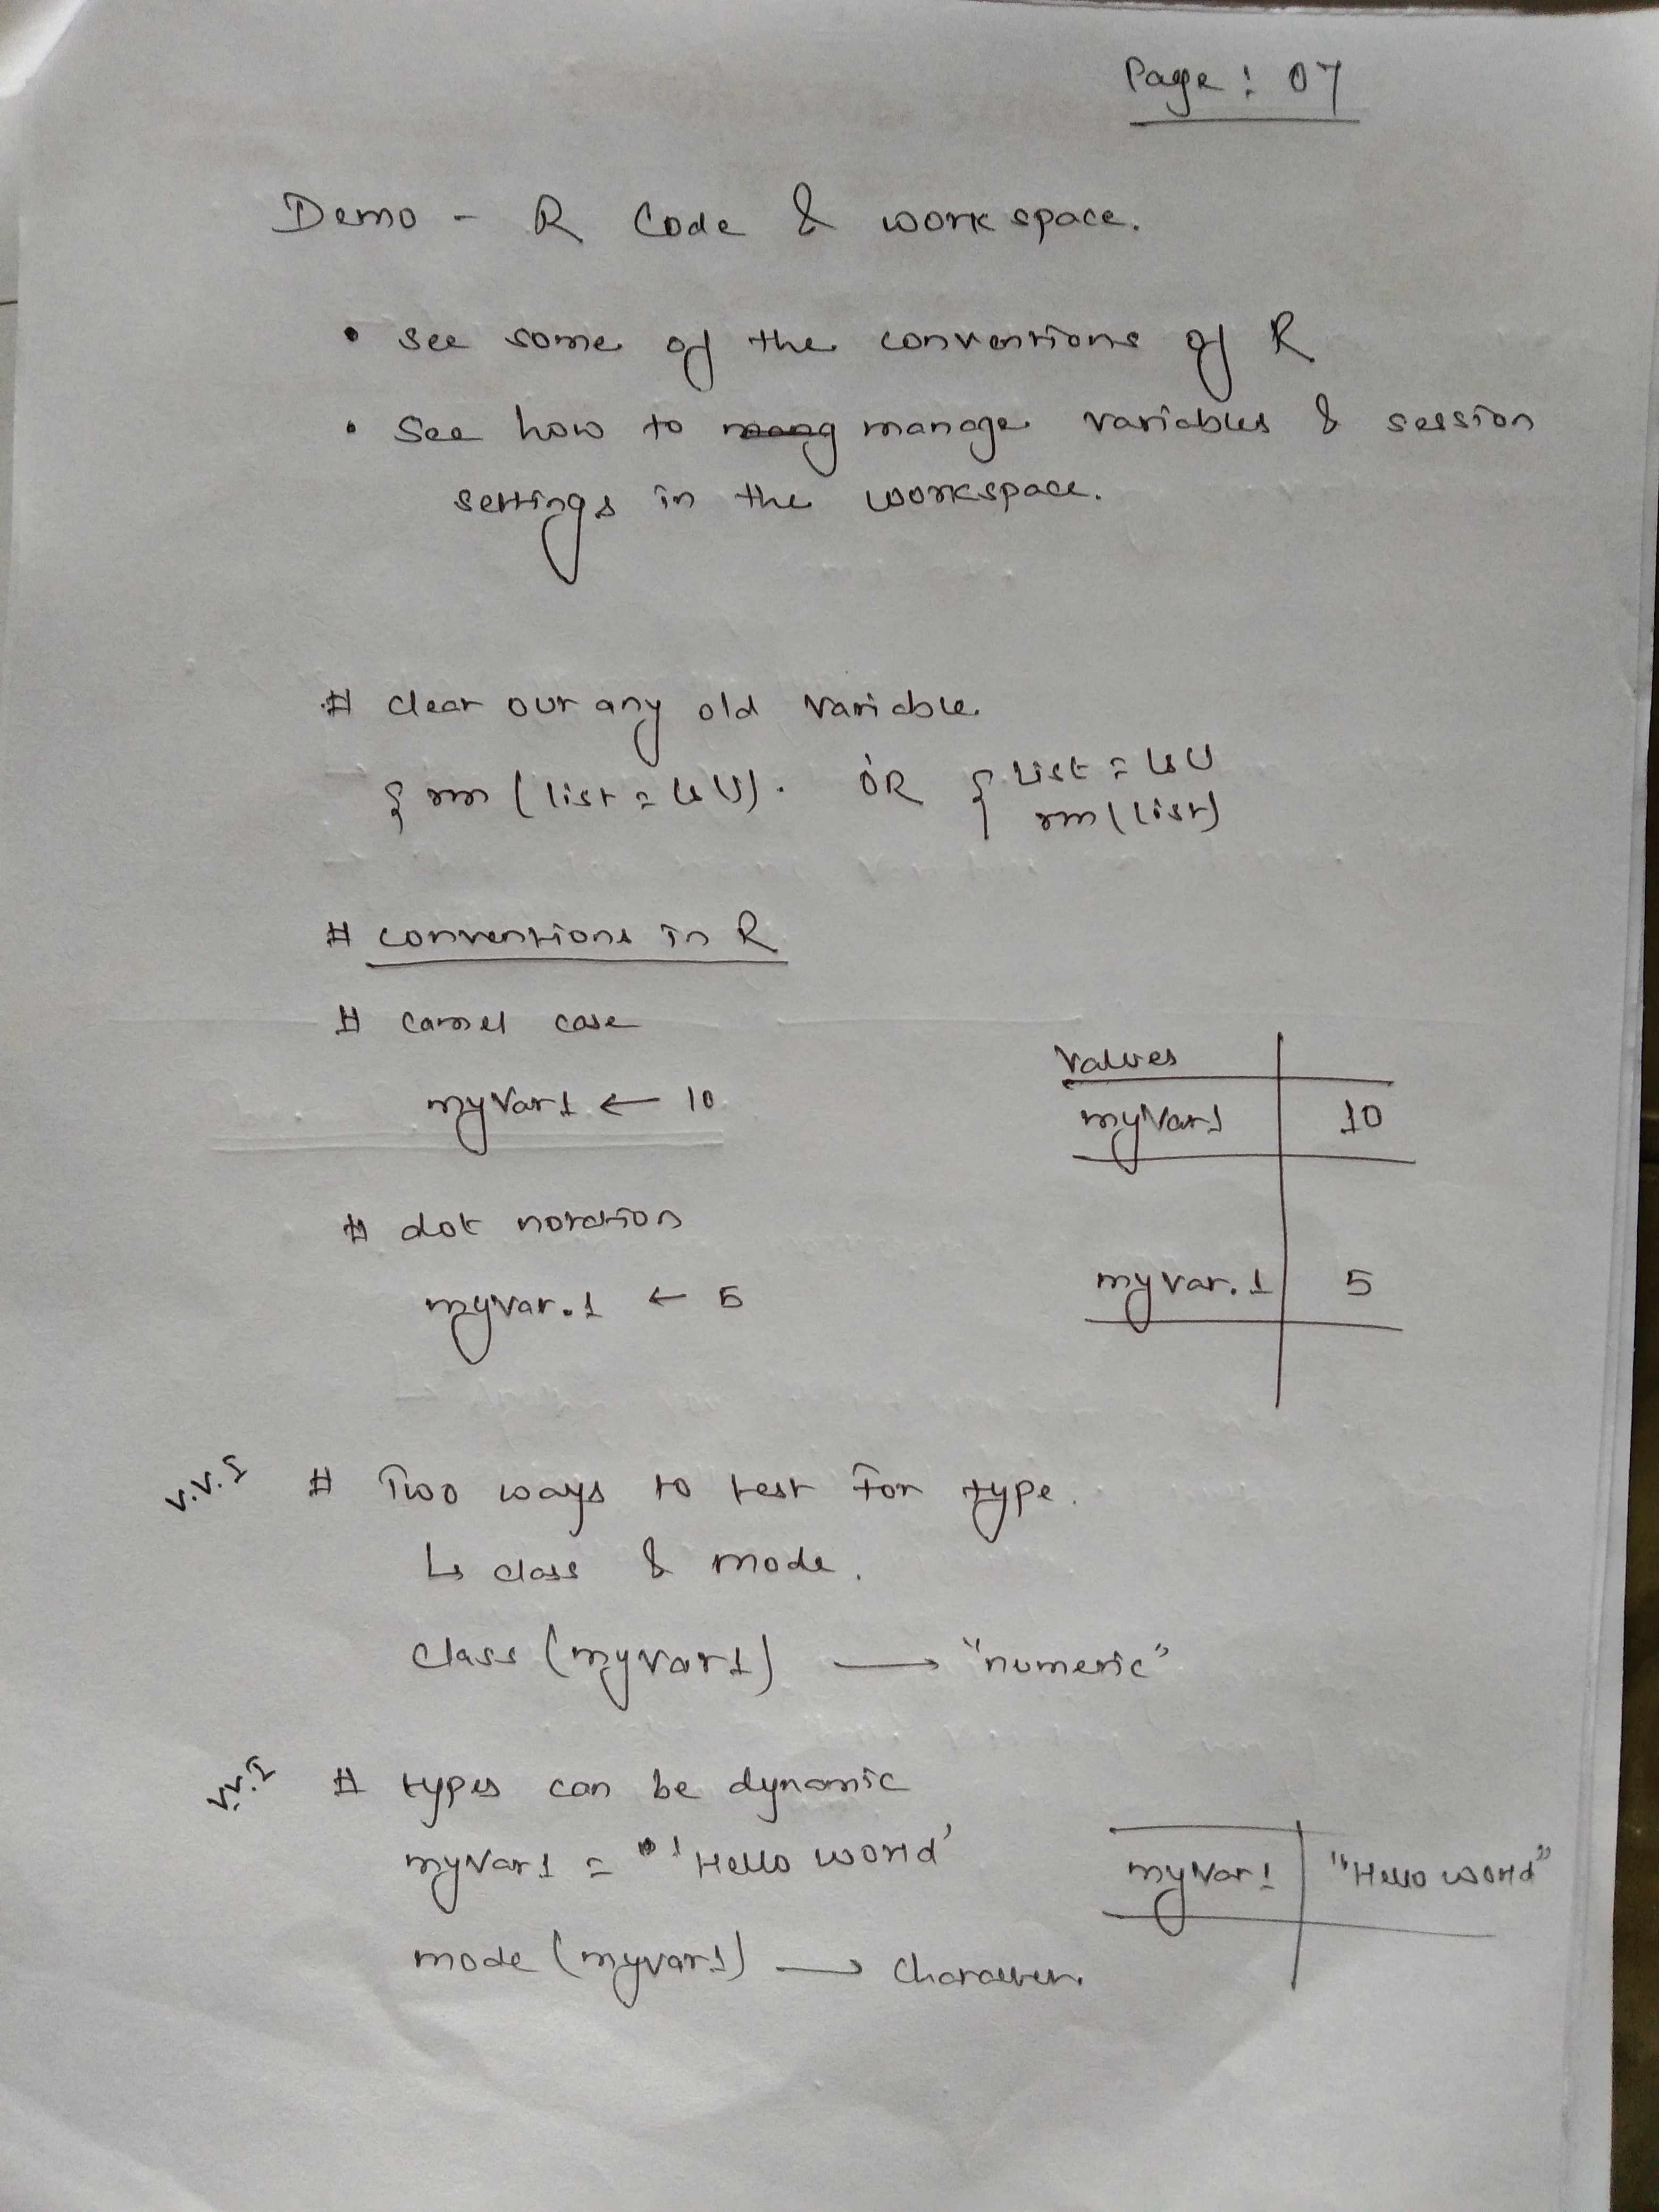 Page : 07
Demo - R Code & workspace.
• see some of the conventions of R
• See how to manage variables & session
settings in the workspace.
# clear out any old variable
{ rm (list = ls()). OR { list = ls()
rm(list)
# conventions in R
# camel case
Values
myVar1 ← 10
myVar1 10
# dot notation
myvar.1 ← 5
myvar.1 5
V.V.I # Two ways to test for type.
↳ class & mode.
class (myvar1) → "numeric"
V.V.I # types can be dynamic
myVar1 = 'Hello world'
myVar1 "Hello world"
mode (myvar1) → character.